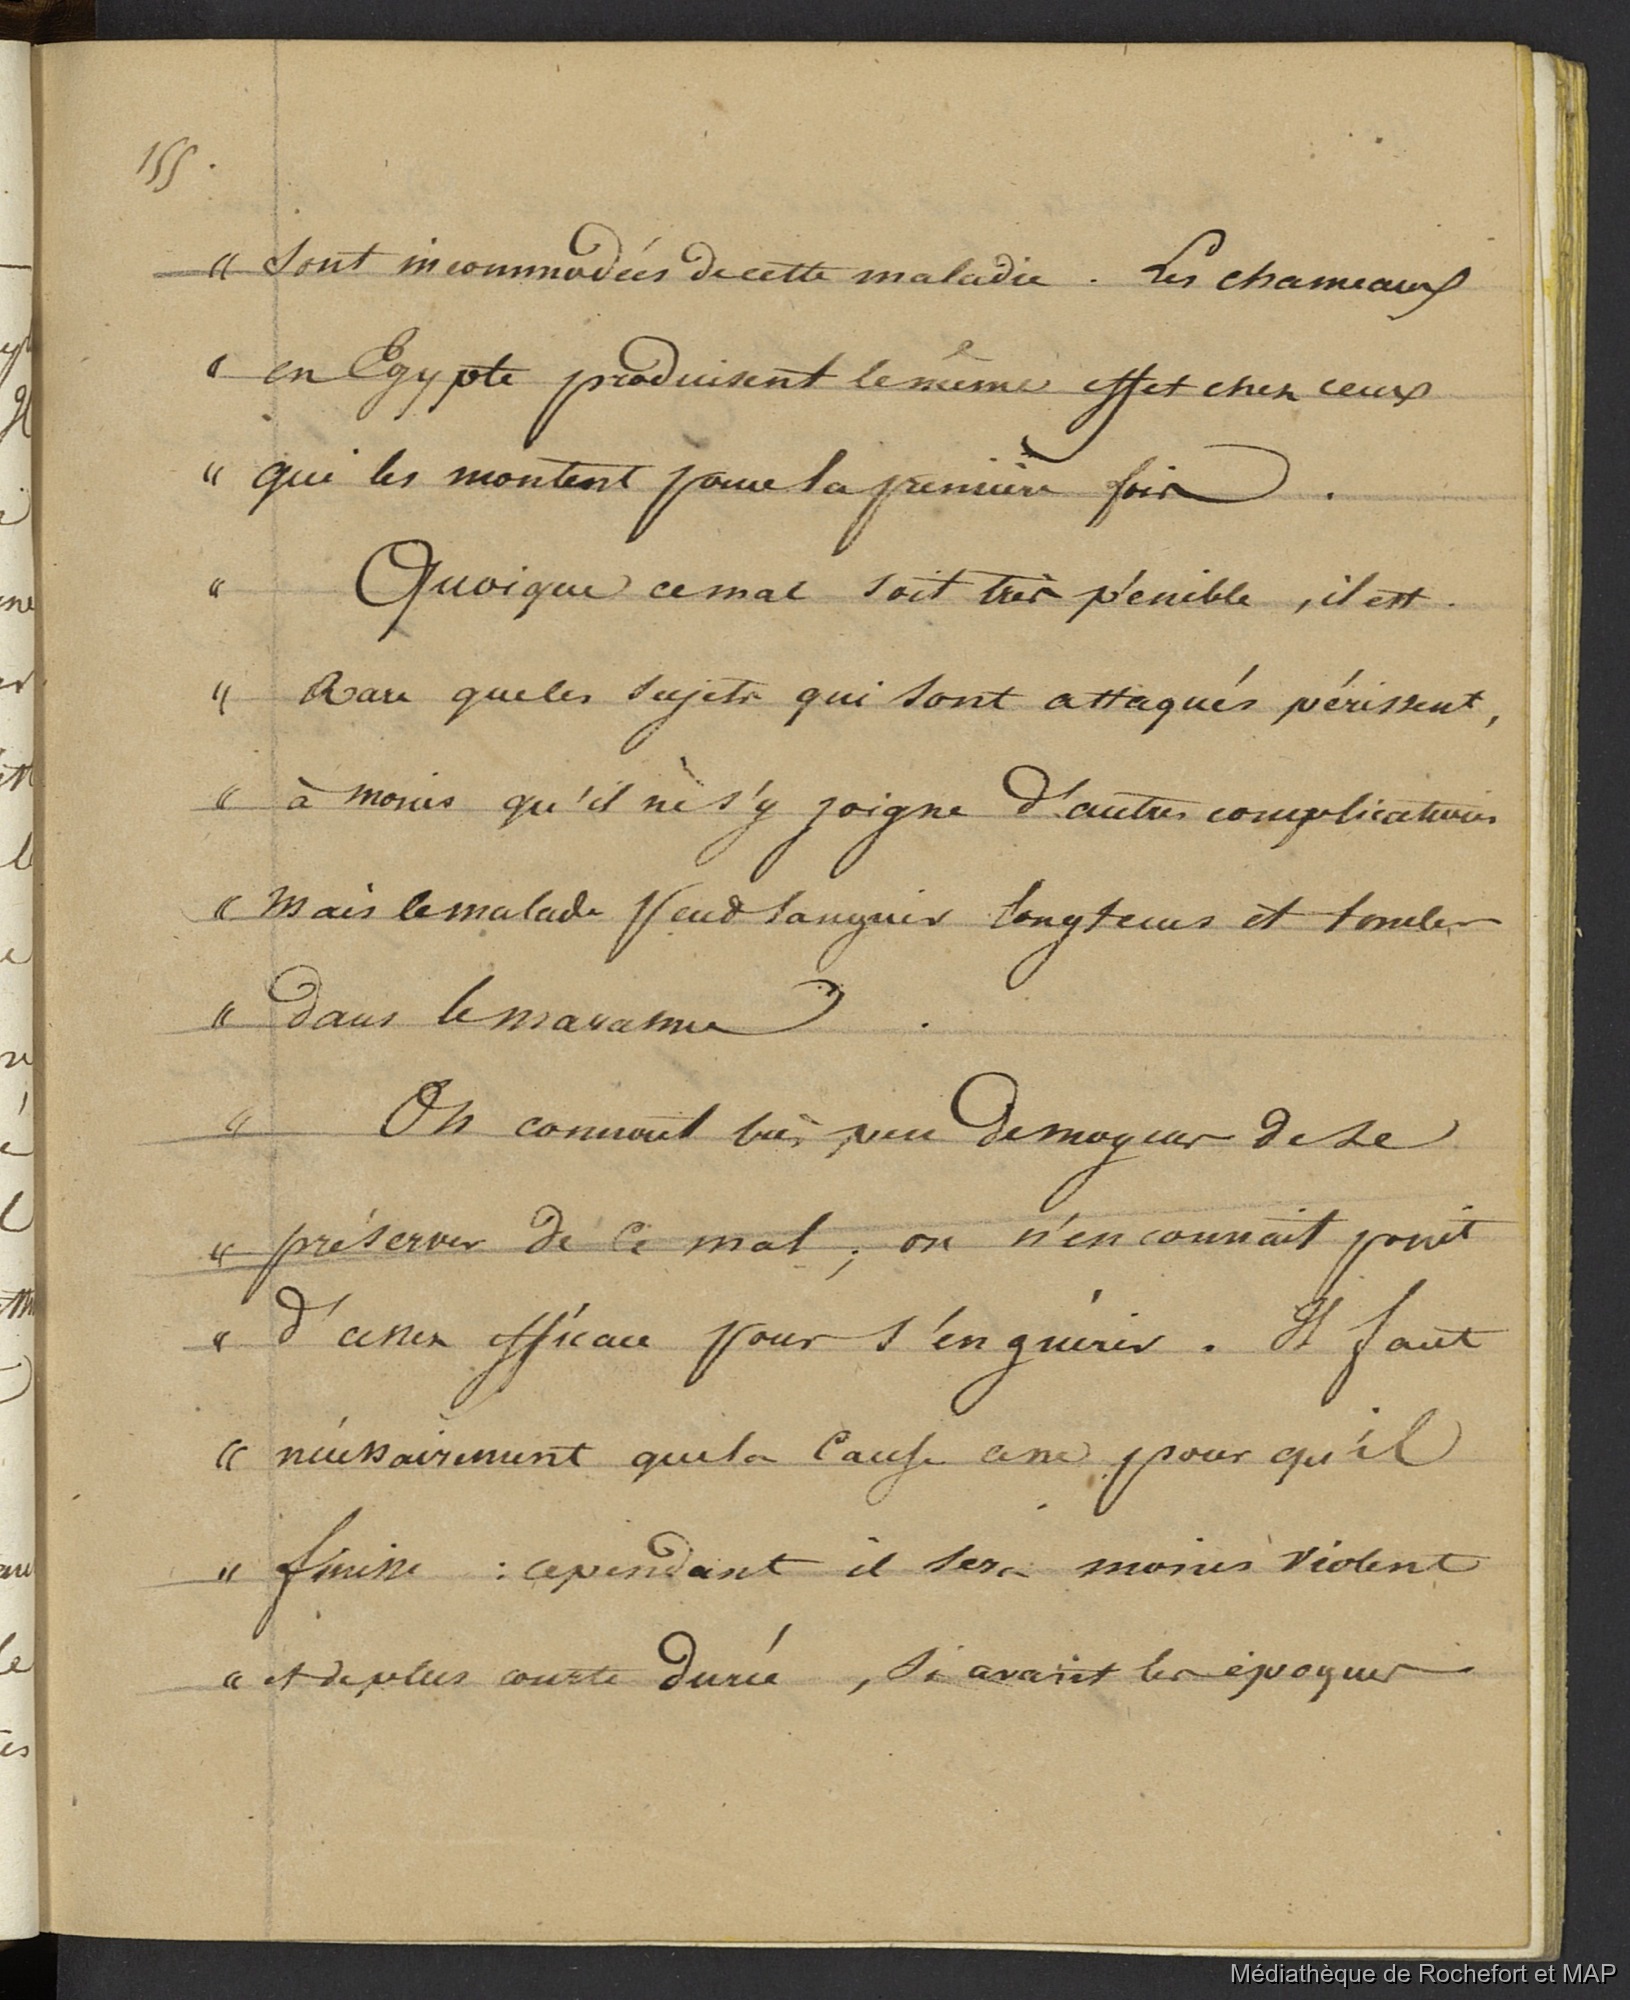 155.
" sont incommodées de cette maladie. Les chameaux
" en Egypte produisent le même effet chez ceux
" qui les montent pour la première fois.
" Quoique ce mal soit très pénible, il est.
" Rare que les sujets qui sont attaqués périssent,
" à moins qu'il ne s'y joigne d'autres complications
" Mais le malade peud languir longtems et tomber
" dans le marasme.
" On connait très peu de moyens de se
" préserver de ce mal; on n'en connait point
" d'assez efficace pour s'en guérir. Il faut
" nécessairement que la cause cesse pour qu'il
" finisse : cependant il sera moins violent
" et de plus courte durée, si avant les époques
Médiathèque de Rochefort et MAP